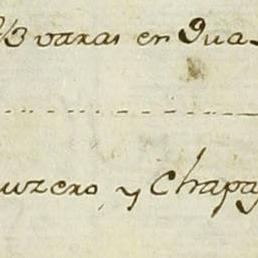 1/3 varas en Qua
uzero, y Chapa